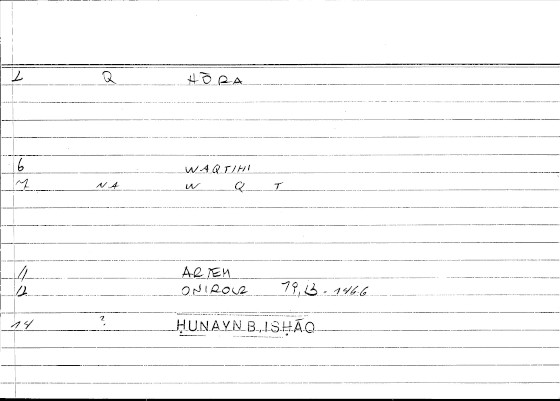 1 Q HŌRA
6 WAQTIHI
7 NA W Q T
11 ARTEM
12 ONIROCR 79,13 - 1466
14 ? ḤUNAYN B. ISḤĀQ